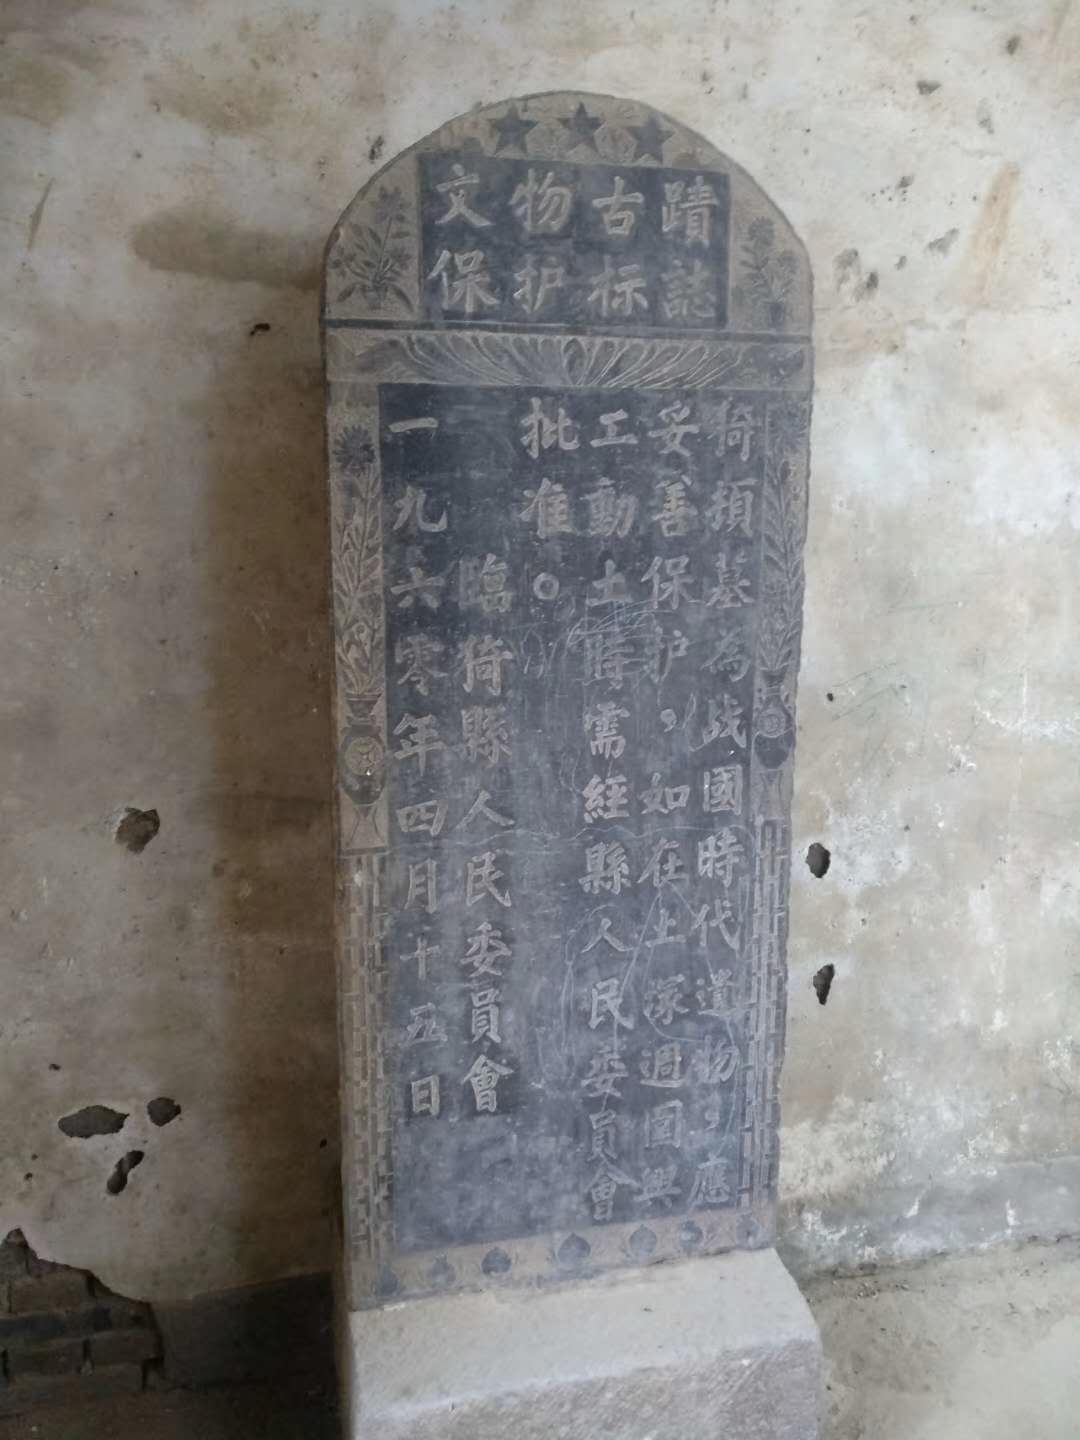 文物古蹟
保护标誌
猗頓墓為战國時代遺物，應
妥善保护，如在上冢週圍興
工動土時需經縣人民委員會
批准。
臨猗縣人民委員會
一九六零年四月十五日